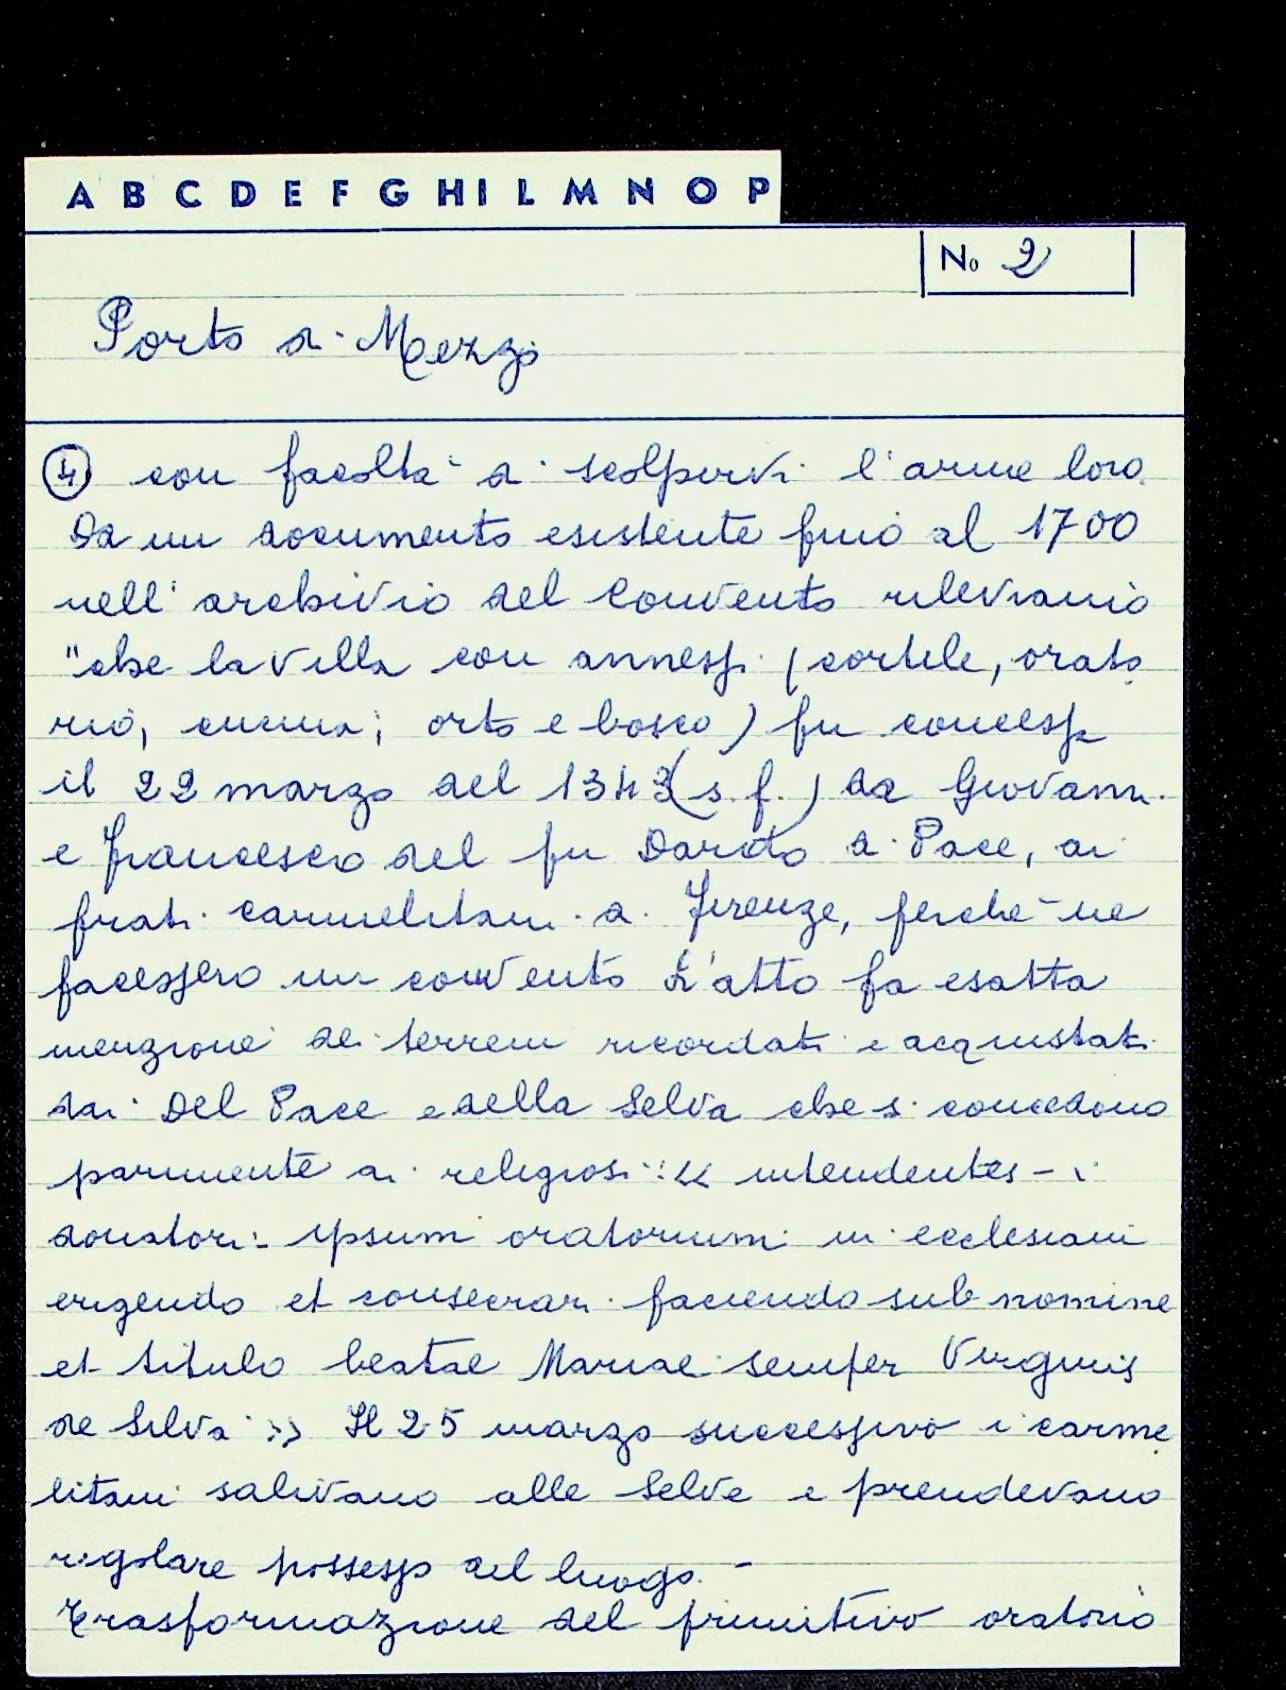 A B C D E F G H I L M N O P
No 2
Porto di Mezzo
④ con facoltà di scolpirvi l'arme loro.
Da un documento esistente fino al 1700
nell'archivio del Convento rileviamo
"che la villa con annessi (cortile, orato
rio, cucina, orto e bosco) fu concessa
il 22 marzo del 1343 (s. f.) da Giovanni
e Francesco del fu Dardo di Pace, ai
frati carmelitani di Firenze, perchè ne
facessero un convento L'atto fa esatta
menzione dei terreni ricordati e acquistati
dai Del Pace e della Selva che si concedono
parimente ai religiosi: << intendentes - i
donatori - ipsum oratorium in ecclesiam
erigendo et consecrari faciendo sub nomine
et titulo beatae Mariae semper Virginis
de Silva >> Il 25 marzo successivo i carme
litani salivano alle Selve e prendevano
regolare possesso del luogo. -
Trasformazione del primitivo oratorio